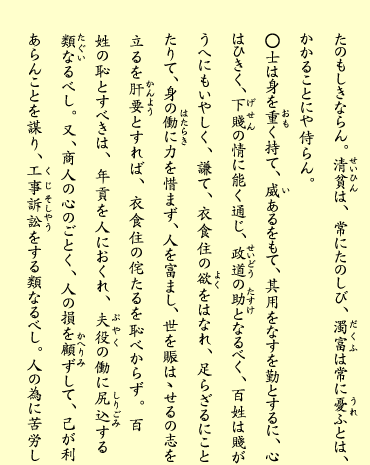 たのもしきならん。清貧は、常にたのしび、濁富は常に憂ふとは、
かかることにや侍らん。
〇士は身を重く持て、威あるをもて、其用をなすを勤とするに、心
はひきく、下賤の情に能く通じ、政道の助となるべく、百姓は賤が
うへにもいやしく、謙て、衣食住の欲をはなれ、足らざるにこと
たりて、身の働に力を惜まず、人を富まし、世を賑はゝせるの志を
立るを肝要とすれば、衣食住の侘たるを恥べからず。百
姓の恥とすべきは、年貢を人におくれ、夫役の働に尻込する
類なるべし。又、商人の心のごとく、人の損を顧ずして、己が利
あらんことを謀り、工事訴訟をする類なるべし。人の為に苦労し